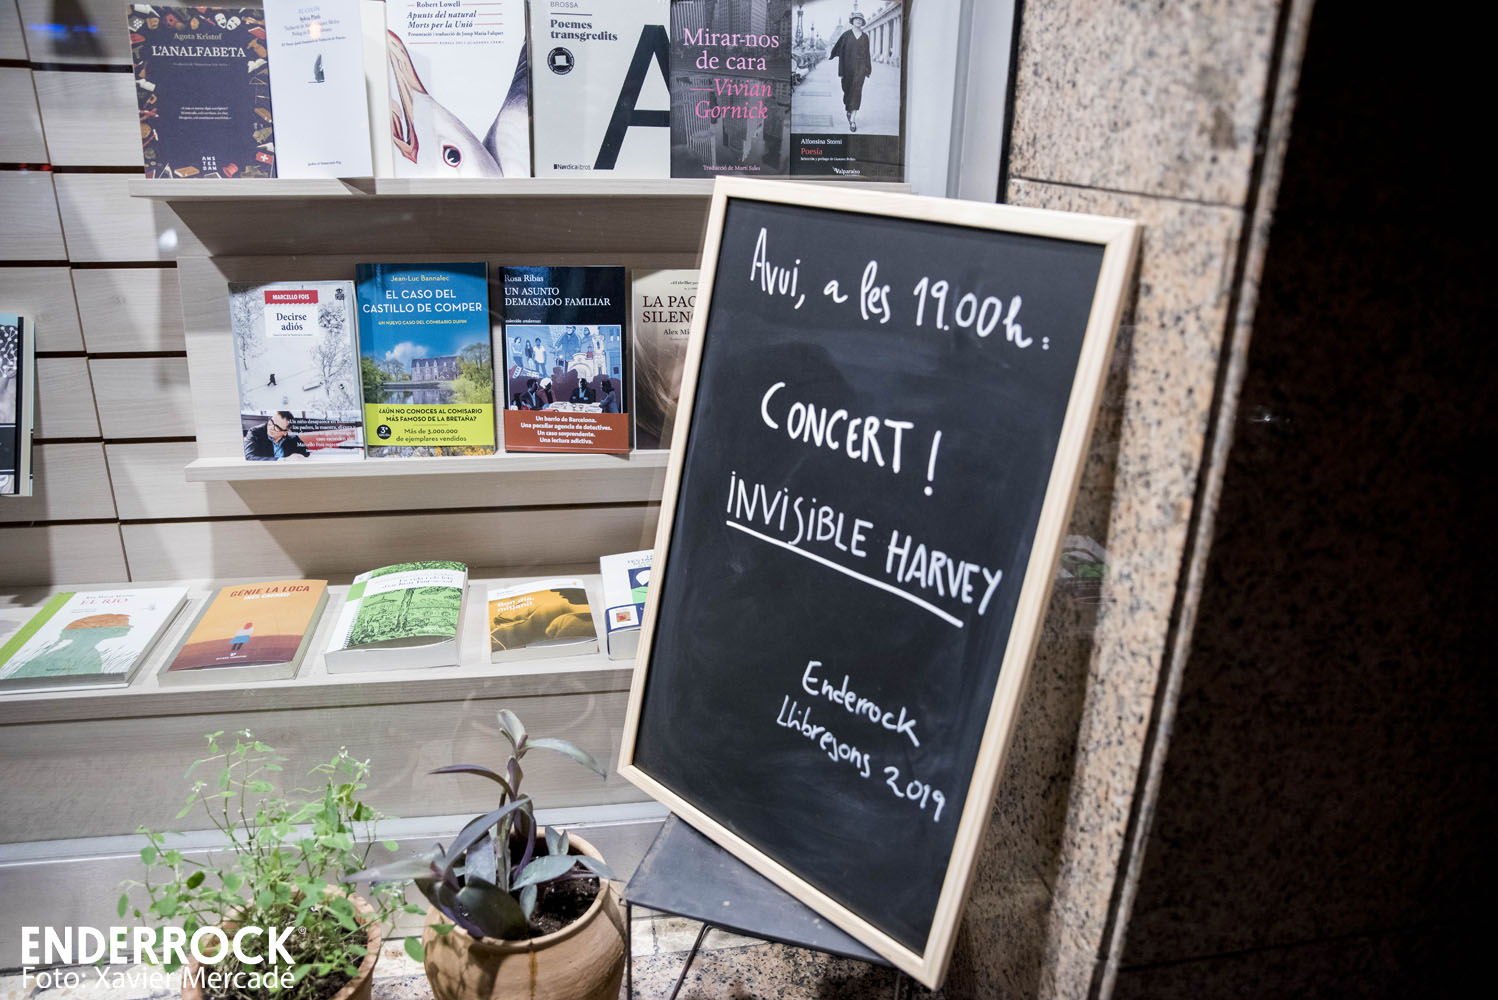 Agota Kristof
L'ANALFABETA
AMS
TER
DAM
Sylvia Plath
Robert Lowell
Apunts del natural
Morts per la Unió
Presentació i traducció de Josep Maria Fulquet
BROSSA
Poemes
transgredits
A
Nørdicalibros
Mirar-nos
de cara
—Vivian
Gornick
Traducció de Martí Sales
Alfonsina Storni
Poesía
Valparaíso
MARCELLO FOIS
Decirse
adiós
Jean-Luc Bannalec
EL CASO DEL
CASTILLO DE COMPER
UN NUEVO CASO DEL COMISARIO DUPIN
¿AÚN NO CONOCES AL COMISARIO
MÁS FAMOSO DE LA BRETAÑA?
3ª
Más de 3.000.000
de ejemplares vendidos
Rosa Ribas
UN ASUNTO
DEMASIADO FAMILIAR
Un barrio de Barcelona.
Una peculiar agencia de detectives.
Un caso sorprendente.
Una lectura adictiva.
LA PAC
SILEN
Alex Mi
EL RÍO
GÉNIE LA LOCA
Bon dia,
Avui, a les 19.00h:
CONCERT!
INVISIBLE HARVEY
Enderrock
Llibresons 2019
ENDERROCK
Foto: Xavier Mercadé